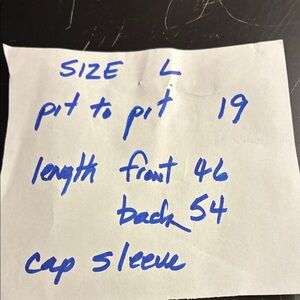 SIZE L
pit to pit 19
length front 46
back 54
cap sleeve